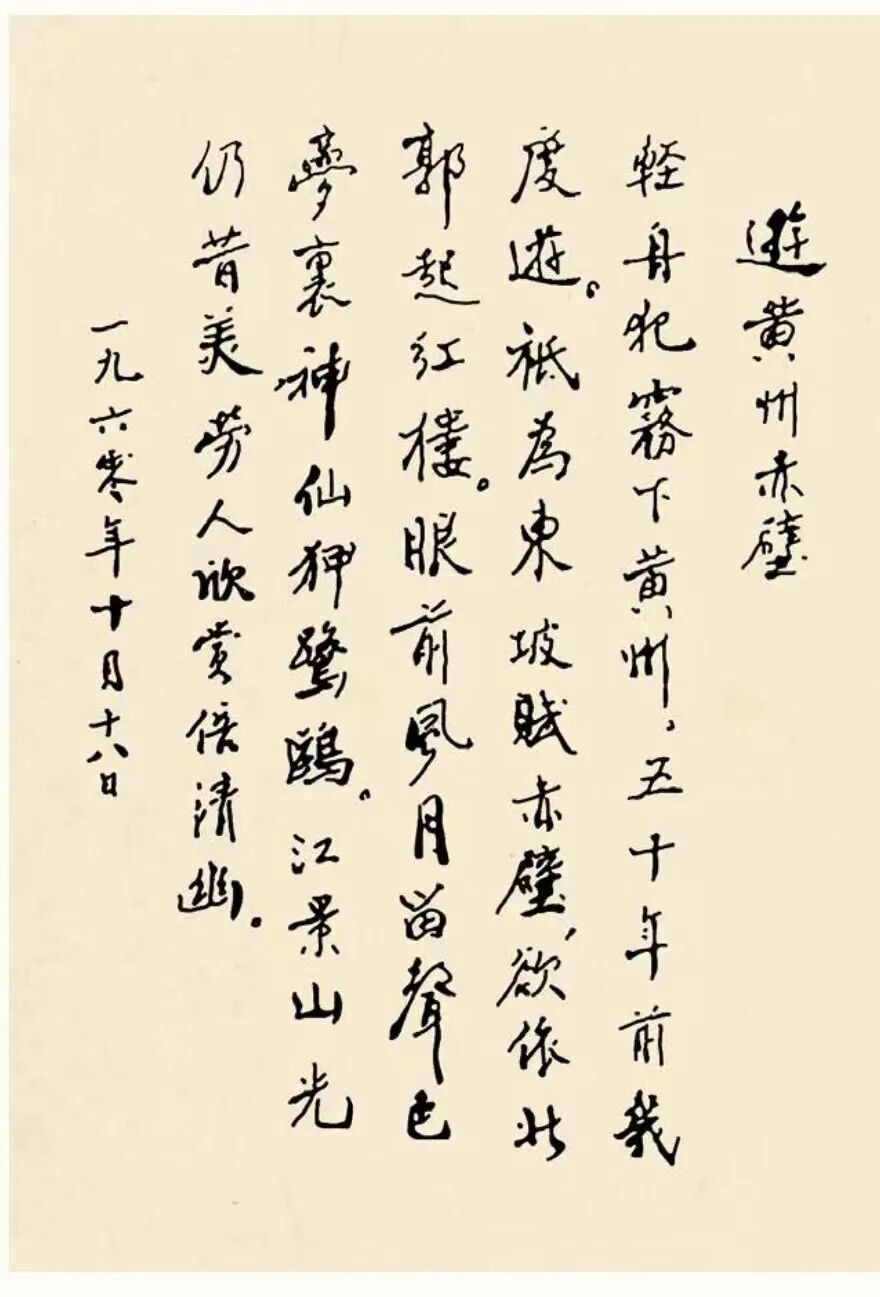 遊黄州赤壁
軽身犯霧下黄州，五十年前幾
度遊。祗為東坡賦赤壁，欲依北
郭起红楼。眼前風月留聲色
夢裏神仙狎鷺鷗。江景山光
仍昔美劳人欣赏倍清幽。
一九六零年十月十八日